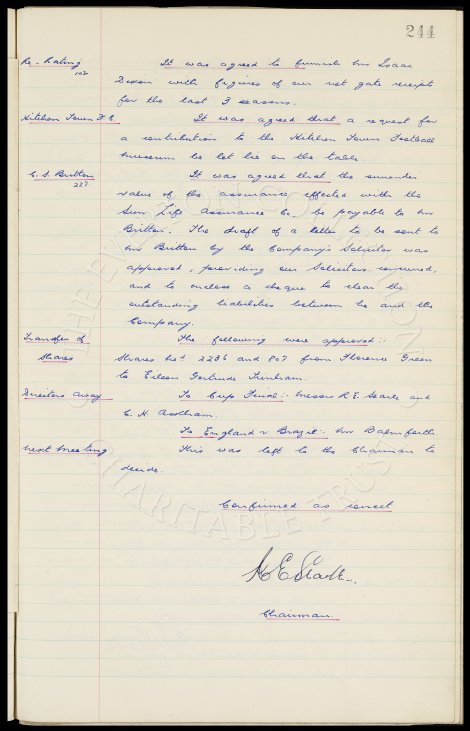 244
Re-Rating
102
It was agreed to furnish Mr Isaac
Dixon with figures of our net gate receipts
for the last 3 seasons.
Hitchin Town F.C.
It was agreed that a request for
a contribution to the Hitchin Town Football
museum be let lie on the table.
C. S. Britton
227.
It was agreed that the surrender
value of the assurance effected with the
Sun Life Assurance Co. be payable to Mr
Britton. The draft of a letter to be sent to
Mr Britton by the Company's Solicitor was
approved, providing our Solicitors concurred,
and to enclose a cheque to clear the
outstanding liabilities between he and the
Company.
Transfer of
Shares
The following were approved:-
Shares No's. 2236 and 807 from Florence Green
to Eileen Gertrude
Directors Away
To Cup Final:- Messrs R.E. Searle and
C. H. Askham.
To England v Brazil:- Mr Balmforth.
Next Meeting
This was left to the Chairman to
decide.
Confirmed as correct
Chairman
THE EVERTON COLLECTION
CHARITABLE TRUST